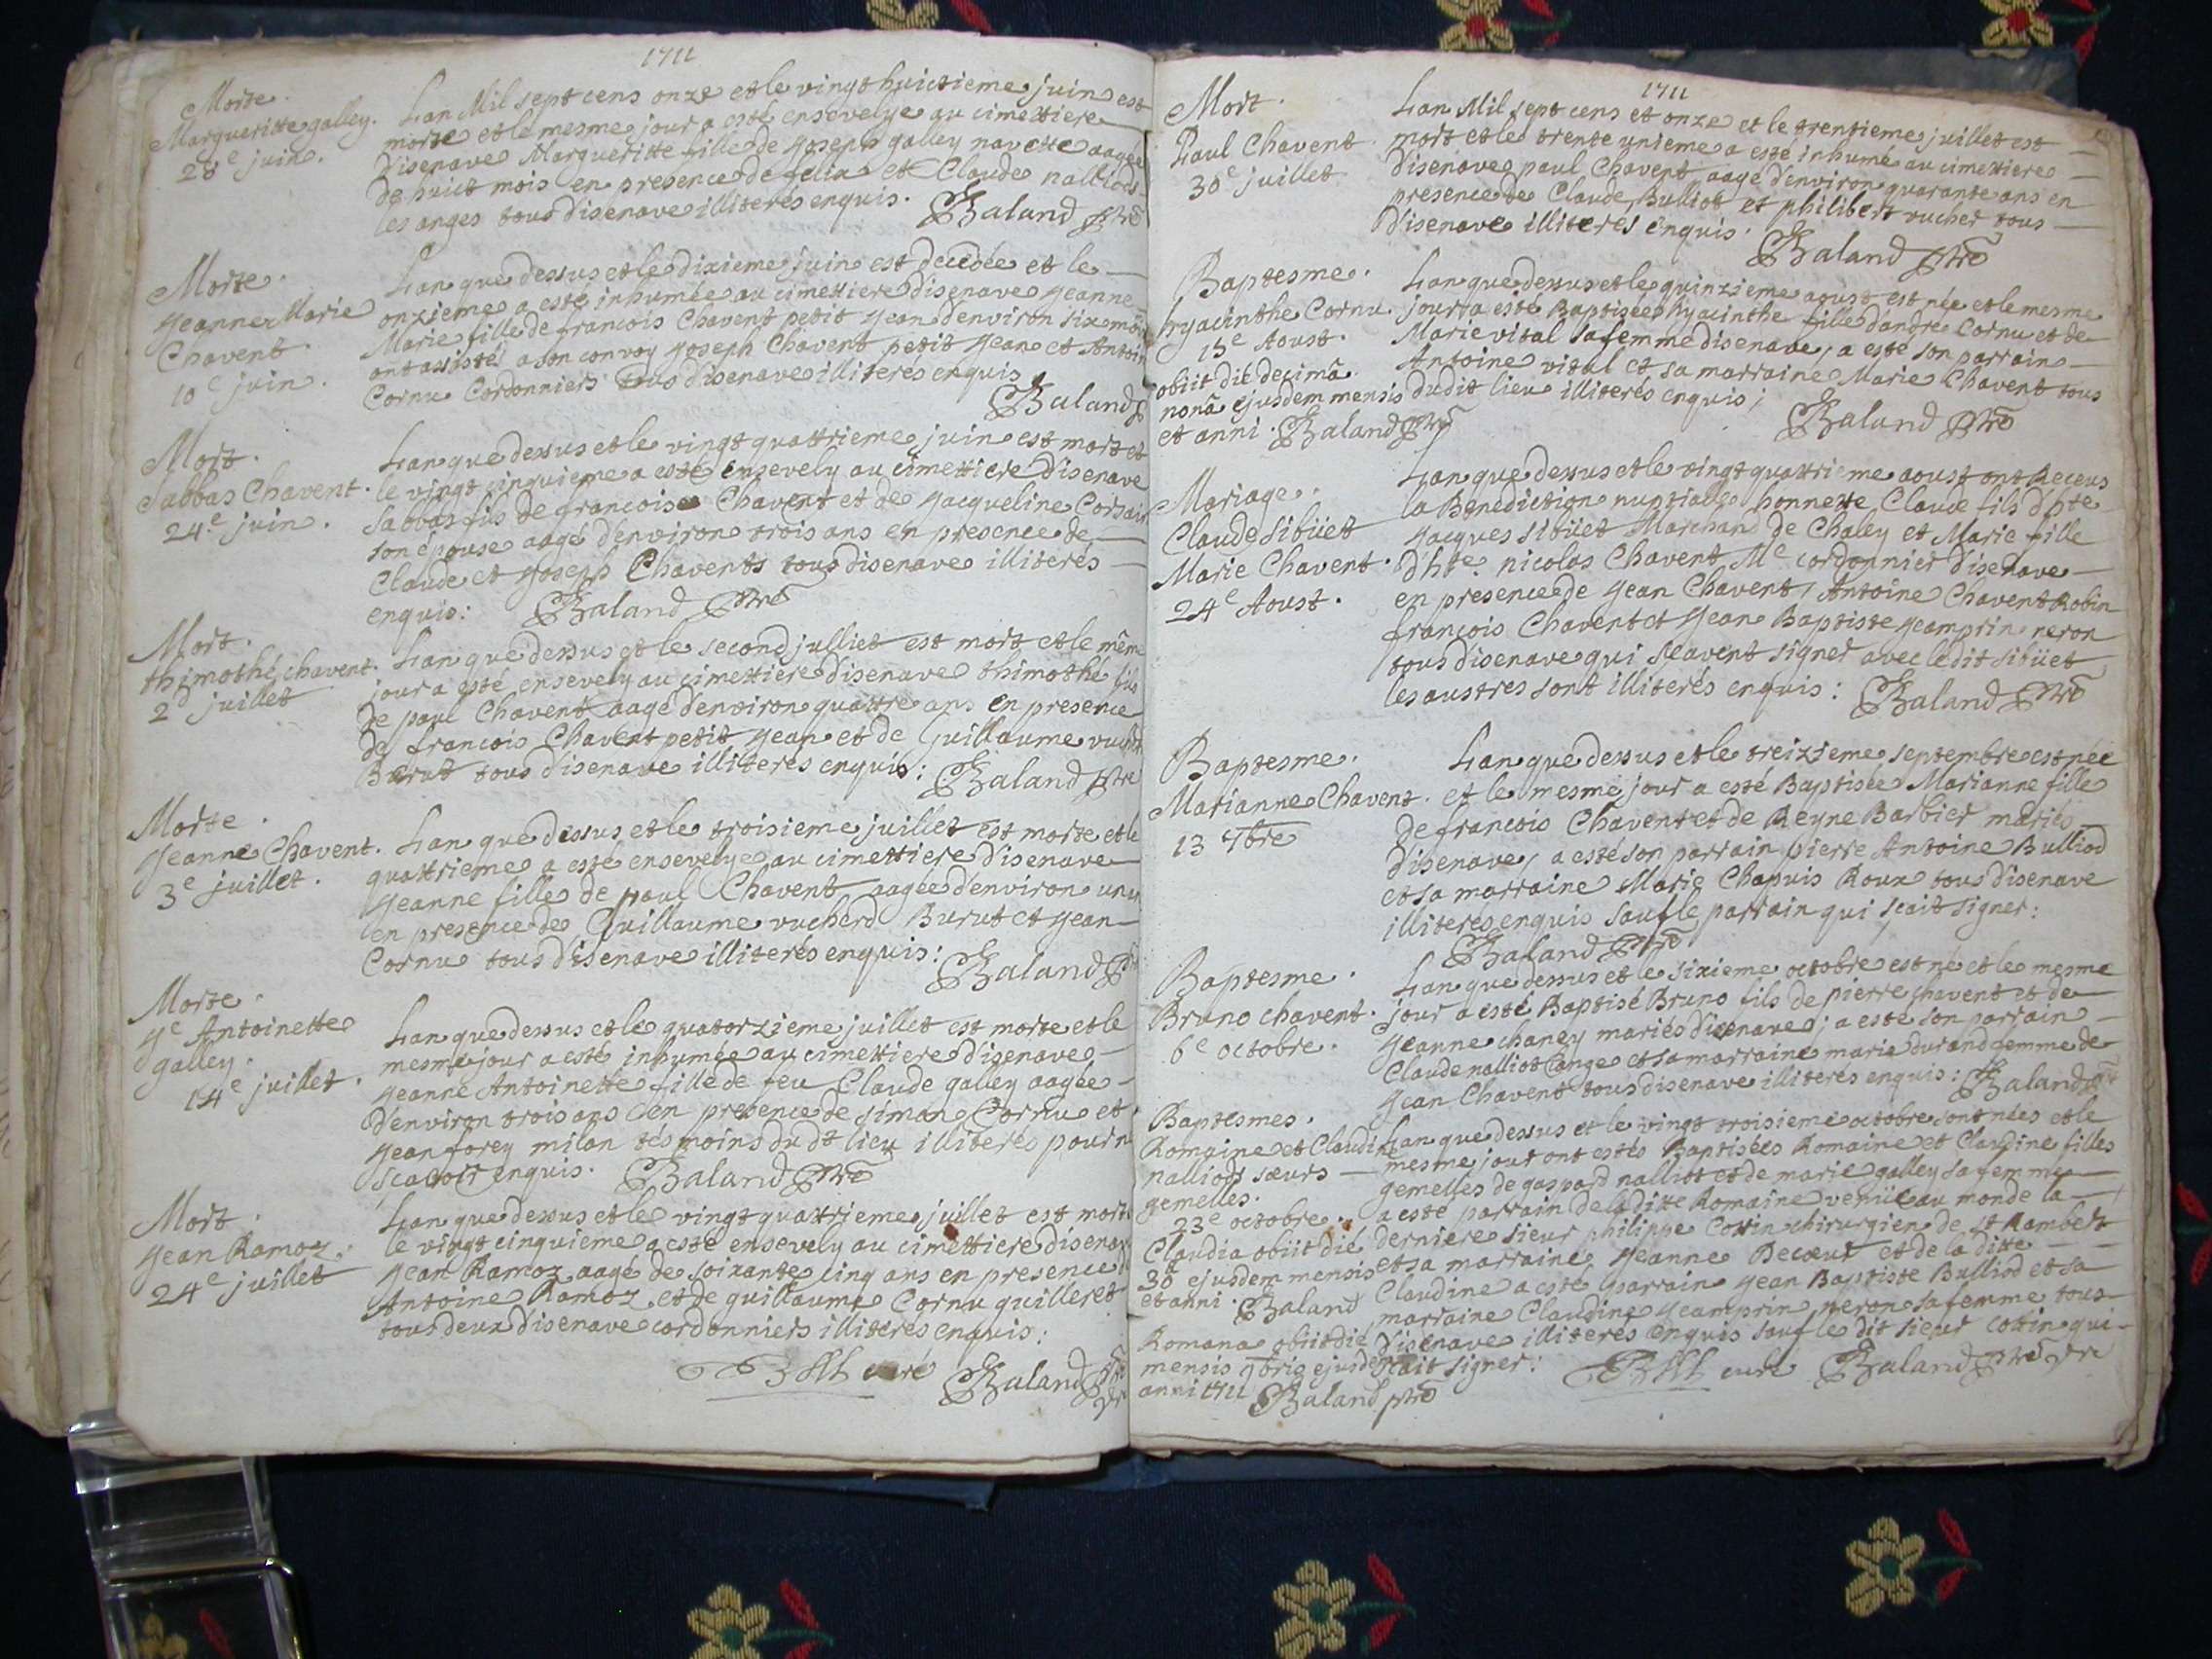 1711
Morte.
Margueritte galley.
28e juin.
Lan Mil sept cens onze et le vingt huictieme juin est
morte et le mesme jour a esté ensevelye au cimettiere
disenave Margueritte fille de Joseph galley navette aagée
de huict mois en presence de felix et Claude nalliods
les anges tous disenave illiterés enquis. Baland ptre
Morte.
Jeanne Marie
Chavent.
10e juin.
Lan que dessus et le dixieme juin est decedée et le
onzieme a esté inhumée au cimettiere disenave Jeanne
Marie fille de francois Chavent petit Jean d'environ six mois
ont assisté a son convoy Joseph Chavent petit Jean et Antoine
Cornu Cordonniers tous disenave illiterés enquis
Baland
Mort.
Sabbas Chavent.
24e juin.
Lan que dessus et le vingt quattrieme juin est mort et
le vingt cinquieme a esté ensevely au cimettiere disenave
Sabbas fils de francois Chavent et de Jacqueline
son épouse aagé d'environ trois ans en presence de
Claude et Joseph Chavents tous disenave illiterés
enquis: Baland ptre
Mort.
thimothé chavent.
2d juillet
Lan que dessus et le second julliet est mort et le même
jour a esté ensevely au cimettiere disenave thimothé fils
de paul Chavent aagé d'environ quattre ans en presence
de francois Chavent petit Jean et de Guillaume
Burut tous disenave illiterés enquis: Baland ptre
Morte.
Jeanne Chavent.
3e juillet.
Lan que dessus et le troisieme juillet est morte et le
quattrieme a esté ensevelye au cimettiere disenave
Jeanne fille de paul Chavent aagée d'environ un an
en presence de Guillaume vucherd Burut et Jean
Cornu tous disenave illiterés enquis: Baland
Morte.
Je Antoinette
galley.
14e juillet.
Lan que dessus et le quatorzieme juillet est morte et le
mesme jour a esté inhumée au cimettiere disenave
Jeanne Antoinette fille de feu Claude galley aagée
d'environ trois ans en presence de simon Cornu et
Jean forey milan tésmoins du dt lieu illiterés pour
scavoir enquis. Baland ptre
Mort.
Jean Ramoz.
24e juillet
Lan que dessus et le vingt quattrieme juillet est mort
le vingt cinquieme a esté ensevely au cimettiere disenave
Jean Ramoz aagé de soixante cinq ans en presence
Antoine Ramoz et de guillaume Cornu quilleret
tous deux disenave cordonniers illiterés enquis:
curé Baland
1711
Mort.
Paul Chavent
30e juillet
Lan Mil sept cens et onze et le trentieme juillet est
mort et le trente unieme a esté inhumé au cimettiere
disenave paul Chavent aagé d'environ quarante ans en
presence de Claude Bulliot et philibert vucher tous
disenave illiterés enquis. Baland ptre
Baptesme.
hyacinthe Cornu.
15e Aoust.
obiit die decimâ
nonâ ejusdem mensis
et anni. Baland ptre
Lan que dessus et le quinzieme aoust est née et le mesme
jour a esté Baptisée hyacinthe fille d'andré Cornu et de
Marie vital sa femme disenave, a esté son parrain
Antoine vital et sa marraine Marie Chavent tous
dudit lieu illiterés enquis;
Baland ptre
Mariage.
Claude Sibüet
Marie Chavent.
24e Aoust.
Lan que dessus et le vingt quattrieme aoust ont Receus
la Benediction nuptialle honneste Claude fils d'hte
Jacques Sibüet Marchand de Chaley et Marie fille
d'hte. nicolas Chavent Me cordonnier disenave
en presence de Jean Chavent, Antoine Chavent Robin
francois Chavent et Jean Baptiste Jeamprin neron
tous disenave qui scavent signer avec ledit sibüet
les austres sont illiterés enquis: Baland ptre
Baptesme.
Marianne Chavent.
13 7bre
Lan que dessus et le treizieme septembre est née
et le mesme jour a esté Baptisée Marianne fille
de francois Chavent et de Reyne Barbier mariés
disenave, a esté son parrain pierre Antoine Bulliod
et sa marraine Marie Chapuis Roux tous disenave
illiterés enquis sauf le parrain qui scait signer:
Baland ptre
Baptesme.
Bruno chavent.
6e octobre.
Lan que dessus et le sixieme octobre est né et le mesme
jour a esté Baptisé Bruno fils de pierre chavent et de
Jeanne chaney mariés disenave; a esté son parrain
Claude nalliot lange et sa marraine marie durand femme de
Jean Chavent tous disenave illiterés enquis: Baland
Baptesmes.
Romaine et Claudine
nalliods sœurs
gemelles.
23e octobre.
Claudia obiit die
30a ejusdem mensis
et anni. Baland
Romana obiit die
mensis 9bris ejusdem
anni 1711 Baland ptre
Lan que dessus et le vingt troisieme octobre sont nées et le
mesme jour ont estés Baptisées Romaine et Claudine filles
gemelles de gaspard nalliot et de marie galley sa femme
a esté parrain de laditte Romaine venüe au monde la
derniere sieur philippe Cottin chirurgien de St Rambert
et sa marraine Jeanne Becœur et de la ditte
Claudine a esté parrain Jean Baptiste Bulliod et sa
marraine Claudine Jeamprin neron sa femme tous
disenave illiterés enquis sauf le dit sieur cottin qui
scait signer: curé Baland ptre